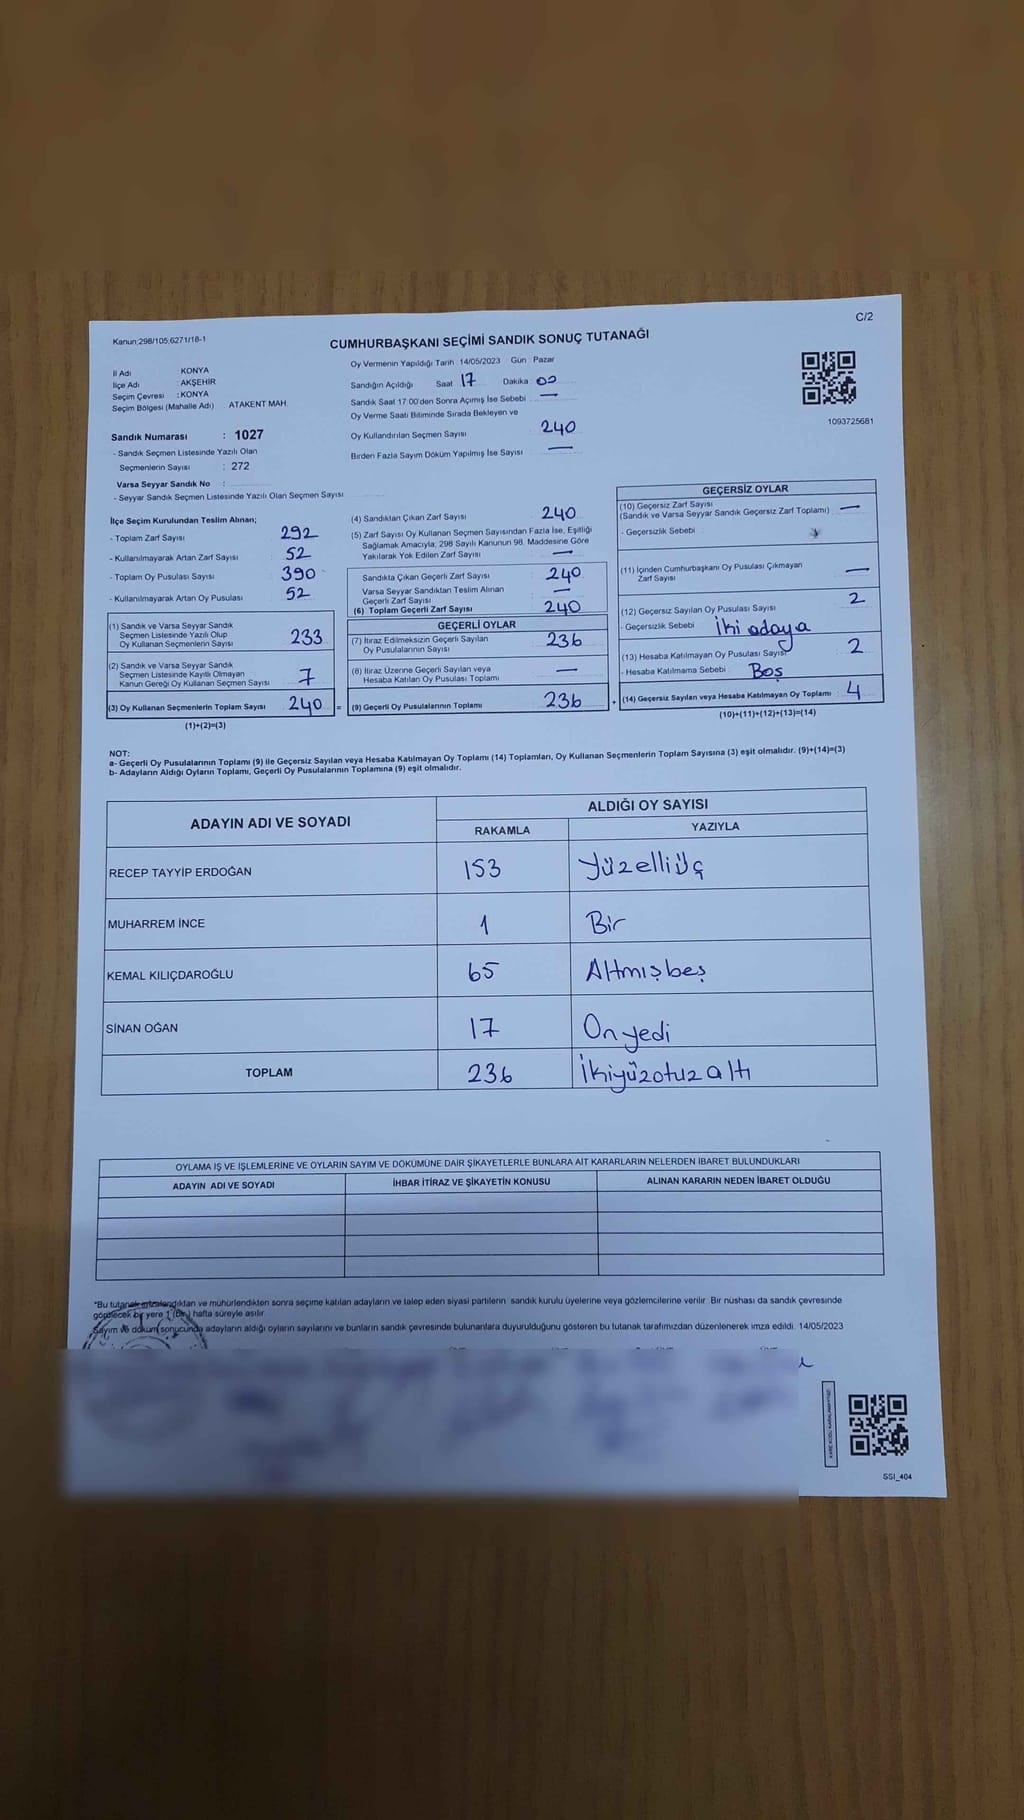 C/2
Kanun;298/105,6271/18-1
CUMHURBAŞKANI SEÇİMİ SANDIK SONUÇ TUTANAĞI
İl Adı : KONYA
İlçe Adı : AKŞEHİR
Seçim Çevresi : KONYA
Seçim Bölgesi (Mahalle Adı) ATAKENT MAH.
Sandık Numarası : 1027
- Sandık Seçmen Listesinde Yazılı Olan
Seçmenlerin Sayısı : 272
Varsa Seyyar Sandık No :
- Seyyar Sandık Seçmen Listesinde Yazılı Olan Seçmen Sayısı
Oy Vermenin Yapıldığı Tarih :14/05/2023 Gün : Pazar
Sandığın Açıldığı Saat 17 Dakika 00
Sandık Saat 17:00'den Sonra Açımış İse Sebebi —
Oy Verme Saati Bitiminde Sırada Bekleyen ve
Oy Kullandırılan Seçmen Sayısı 240
Birden Fazla Sayım Döküm Yapılmış İse Sayısı —
1093725681
İlçe Seçim Kurulundan Teslim Alınan;
- Toplam Zarf Sayısı : 292
- Kullanılmayarak Artan Zarf Sayısı : 52
- Toplam Oy Pusulası Sayısı : 390
- Kullanılmayarak Artan Oy Pusulası : 52
(1) Sandık ve Varsa Seyyar Sandık
Seçmen Listesinde Yazılı Olup
Oy Kullanan Seçmenlerin Sayısı 233
(2) Sandık ve Varsa Seyyar Sandık
Seçmen Listesinde Kayıtlı Olmayan
Kanun Gereği Oy Kullanan Seçmen Sayısı : 7
(3) Oy Kullanan Seçmenlerin Toplam Sayısı : 240 =
(1)+(2)=(3)
(4) Sandıktan Çıkan Zarf Sayısı : 240
(5) Zarf Sayısı Oy Kullanan Seçmen Sayısından Fazla İse, Eşitliği
Sağlamak Amacıyla, 298 Sayılı Kanunun 98. Maddesine Göre
Yakılarak Yok Edilen Zarf Sayısı : —
Sandıkta Çıkan Geçerli Zarf Sayısı : 240
Varsa Seyyar Sandıktan Teslim Alınan
Geçerli Zarf Sayısı : —
(6) Toplam Geçerli Zarf Sayısı : 240
GEÇERLİ OYLAR
(7) İtiraz Edilmeksizin Geçerli Sayılan
Oy Pusulalarının Sayısı : 236
(8) İtiraz Üzerine Geçerli Sayılan veya
Hesaba Katılan Oy Pusulası Toplamı : —
(9) Geçerli Oy Pusulalarının Toplamı : 236 +
GEÇERSİZ OYLAR
(10) Geçersiz Zarf Sayısı
(Sandık ve Varsa Seyyar Sandık Geçersiz Zarf Toplamı) : —
- Geçersizlik Sebebi :
(11) İçinden Cumhurbaşkanı Oy Pusulası Çıkmayan
Zarf Sayısı : —
(12) Geçersiz Sayılan Oy Pusulası Sayısı : 2
- Geçersizlik Sebebi : İki adaya
(13) Hesaba Katılmayan Oy Pusulası Sayısı : 2
- Hesaba Katılmama Sebebi : Boş
(14) Geçersiz Sayılan veya Hesaba Katılmayan Oy Toplamı : 4
(10)+(11)+(12)+(13)=(14)
NOT:
a- Geçerli Oy Pusulalarının Toplamı (9) ile Geçersiz Sayılan veya Hesaba Katılmayan Oy Toplamı (14) Toplamları, Oy Kullanan Seçmenlerin Toplam Sayısına (3) eşit olmalıdır. (9)+(14)=(3)
b- Adayların Aldığı Oyların Toplamı, Geçerli Oy Pusulalarının Toplamına (9) eşit olmalıdır.
ADAYIN ADI VE SOYADI ALDIĞI OY SAYISI
RAKAMLA YAZIYLA
RECEP TAYYİP ERDOĞAN 153 Yüzelliüç
MUHARREM İNCE 1 Bir
KEMAL KILIÇDAROĞLU 65 Altmışbeş
SİNAN OĞAN 17 Onyedi
TOPLAM 236 İkiyüzotuzaltı
OYLAMA İŞ VE İŞLEMLERİNE VE OYLARIN SAYIM VE DÖKÜMÜNE DAİR ŞİKAYETLERLE BUNLARA AİT KARARLARIN NELERDEN İBARET BULUNDUKLARI
ADAYIN ADI VE SOYADI İHBAR İTİRAZ VE ŞİKAYETİN KONUSU ALINAN KARARIN NEDEN İBARET OLDUĞU
*Bu tutanak imzalandıktan ve mühürlendikten sonra seçime katılan adayların ve talep eden siyasi partilerin sandık kurulu üyelerine veya gözlemcilerine verilir. Bir nüshası da sandık çevresinde
görülecek bir yere 1 (Bir) hafta süreyle asılır.
Sayım ve döküm sonucunda adayların aldığı oyların sayılarını ve bunların sandık çevresinde bulunanlara duyurulduğunu gösteren bu tutanak tarafımızdan düzenlenerek imza edildi. 14/05/2023
SSI_404